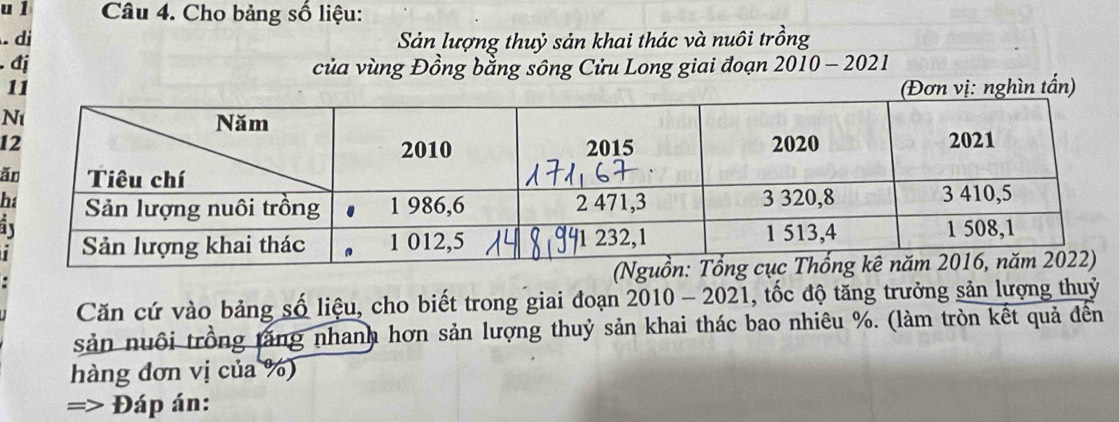 u 1
Câu 4. Cho bảng số liệu:
. di
Sản lượng thuỷ sản khai thác và nuôi trồng
. đị
của vùng Đồng bằng sông Cửu Long giai đoạn 2010 – 2021
11
(Đơn vị: nghìn tấn)
Năm 2010 2015 2020 2021
12
171,67
Tiêu chí
Sản lượng nuôi trồng 1 986,6 2 471,3 3 320,8 3 410,5
Sản lượng khai thác 1 012,5 148,94 1 232,1 1 513,4 1 508,1
(Nguồn: Tổng cục Thống kê năm 2016, năm 2022)
Căn cứ vào bảng số liệu, cho biết trong giai đoạn 2010 – 2021, tốc độ tăng trưởng sản lượng thuỷ
sản nuôi trồng tăng nhanh hơn sản lượng thuỷ sản khai thác bao nhiêu %. (làm tròn kết quả đến
hàng đơn vị của %)
=> Đáp án: